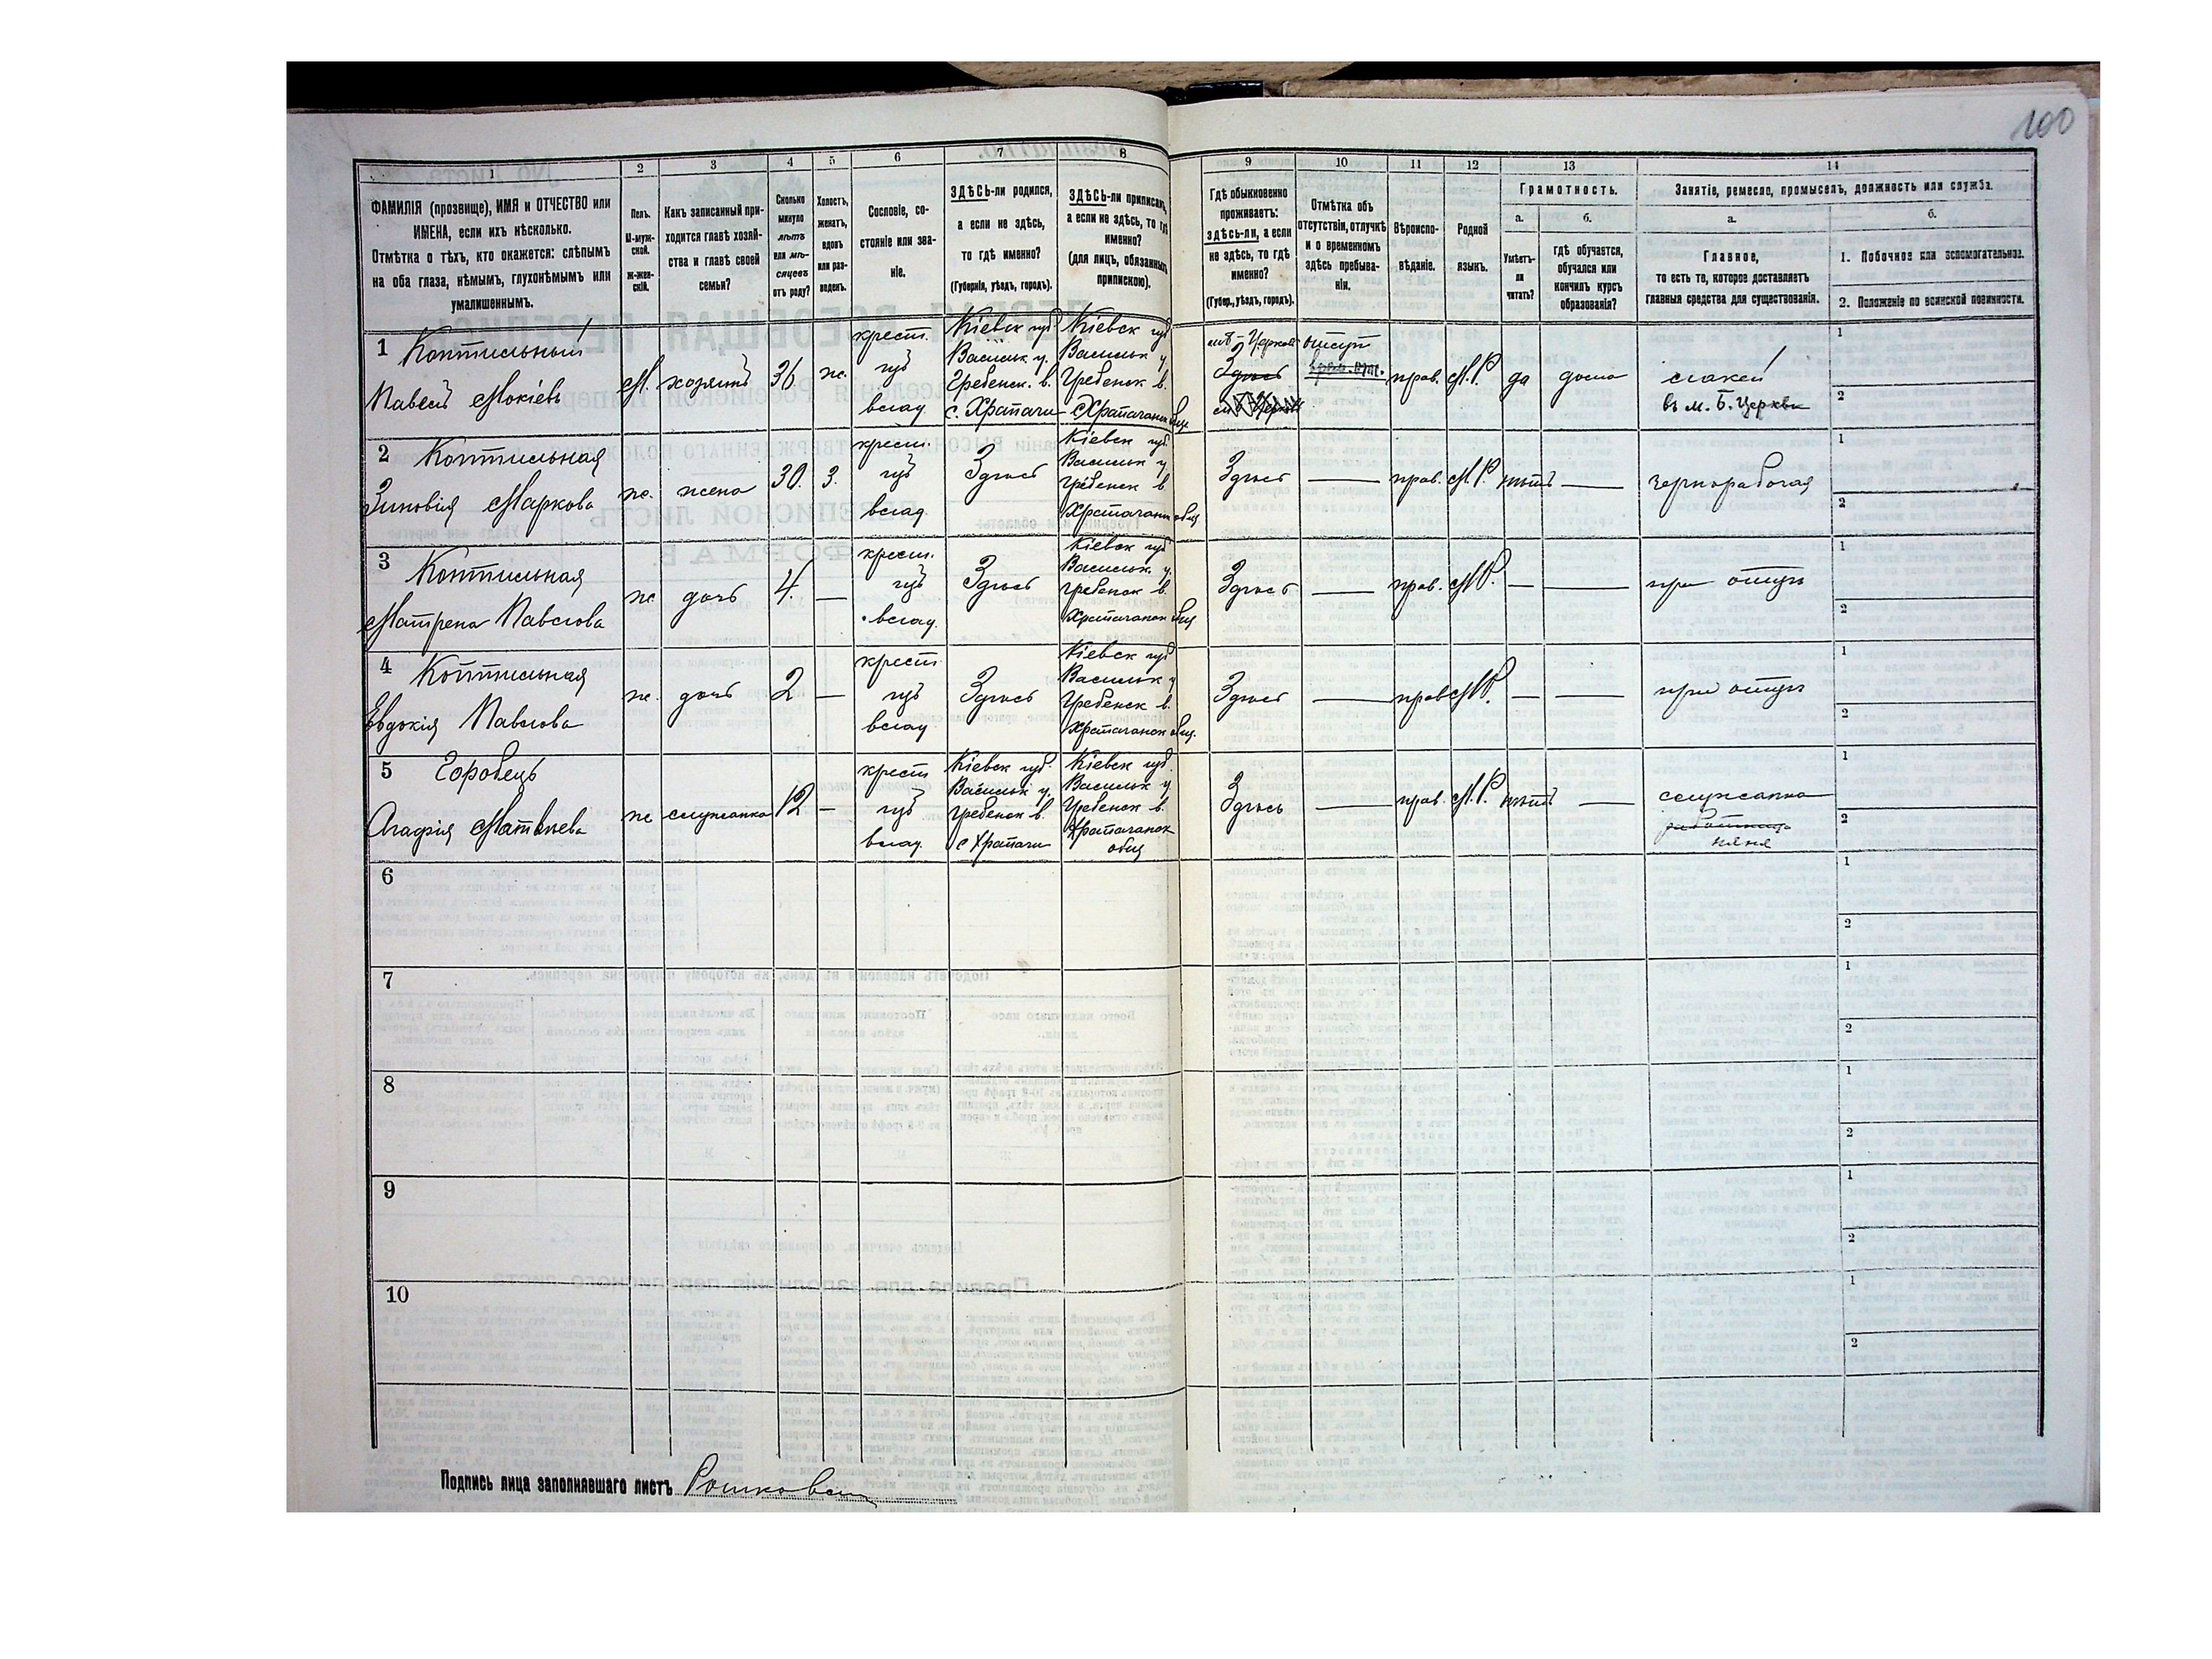 100
1 2 3 4 5 6 7 8 9 10 11 12 13 14
ФАМИЛІЯ (прозвище), ИМЯ и ОТЧЕСТВО или
ИМЕНА, если ихъ нѣсколько.
Отмѣтка о тѣхъ, кто окажется: слѣпымъ
на оба глаза, нѣмымъ, глухонѣмымъ или
умалишеннымъ.
Полъ.
М-муж-
ской.
Ж-жен-
скій.
Какъ записанный при-
ходится главѣ хозяй-
ства и главѣ своей
семьи?
Сколько
минуло
лѣтъ
или мѣ-
сяцевъ
отъ роду?
Холостъ,
женатъ,
вдовъ
или раз-
веденъ.
Сословіе, со-
стояніе или зва-
ніе.
ЗДѢСЬ-ли родился,
а если не здѣсь,
то гдѣ именно?
(Губернія, уѣздъ, городъ).
ЗДѢСЬ-ли приписанъ,
а если не здѣсь, то гдѣ
именно?
(для лицъ, обязанныхъ
припискою).
Гдѣ обыкновенно
проживаетъ:
здѣсь-ли, а если
не здѣсь, то гдѣ
именно?
(Губер., уѣздъ, городъ).
Отмѣтка объ
отсутствіи, отлучкѣ
и о временномъ
здѣсь пребыва-
ніи.
Вѣроиспо-
вѣданіе.
Родной
языкъ.
Грамотность.
а.
Умѣетъ-
ли
читать?
б.
гдѣ обучается,
обучался или
кончилъ курсъ
образованія?
Занятіе, ремесло, промыселъ, должность или служба.
а.
Главное,
то есть то, которое доставляетъ
главныя средства для существованія.
б.
1. Побочное или вспомогательное.
2. Положеніе по воинской повинности.
1 Коптильный
Павелъ Мокіевъ
М. хозяинъ 36 ж.
крест.
влад.
Кіевск губ
Васильк у.
Гребенк. в.
с. Храпачи
Кіевск губ
Васильк у
Гребенк в.
Храпачанск общ
Церковь
Здѣсь
отсут
прав. М.Р. да дома
лакей
въ м. Б. Церкви
1
2
2 Коптильная
Зиновія Маркова
ж. жена 30. З.
крест.
влад.
Здѣсь
Кіевск губ.
Васильк у.
Гребенк в.
Храпачанск общ
Здѣсь — прав. М.Р. нѣтъ — чернорабочая
1
2
3 Коптильная
Матрена Павлова
ж. дочь 4. —
крест.
влад.
Здѣсь
Кіевск губ
Васильк. у.
Гребенк в.
Храпачанск общ
Здѣсь — прав. М.Р. — — при отцѣ
1
2
4 Коптильная
Евдокія Павлова
ж. дочь 2 —
крест
влад
Здѣсь
Кіевск губ
Васильк у
Гребенк в.
Храпачанск общ.
Здѣсь — прав М.Р. — — при отцѣ
1
2
5 Горобець
Агафія Матвѣева
ж служанка 12 —
крест
влад.
Кіевск губ.
Васильк у.
Гребенк в.
с Храпачи
Кіевск губ.
Васильк у
Гребенк в.
Храпачанск
общ
Здѣсь — прав. М.Р. нѣтъ —
служанка
работница
няня
1
2
6
1
2
7
1
2
8
1
2
9
1
2
10
1
2
Подпись лица заполнявшаго листъ